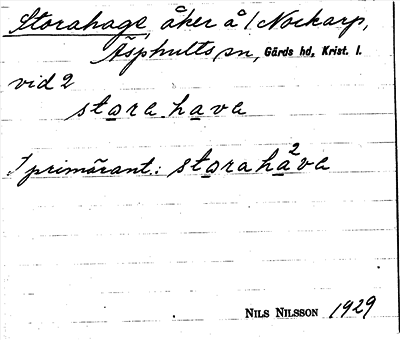 Storahage, åker å 1 Norkarp,
Äsphults sn, Gärds hd, Krist. l.
vid 2
stora hava
I primärant.: storaha²va
NILS NILSSON 1929